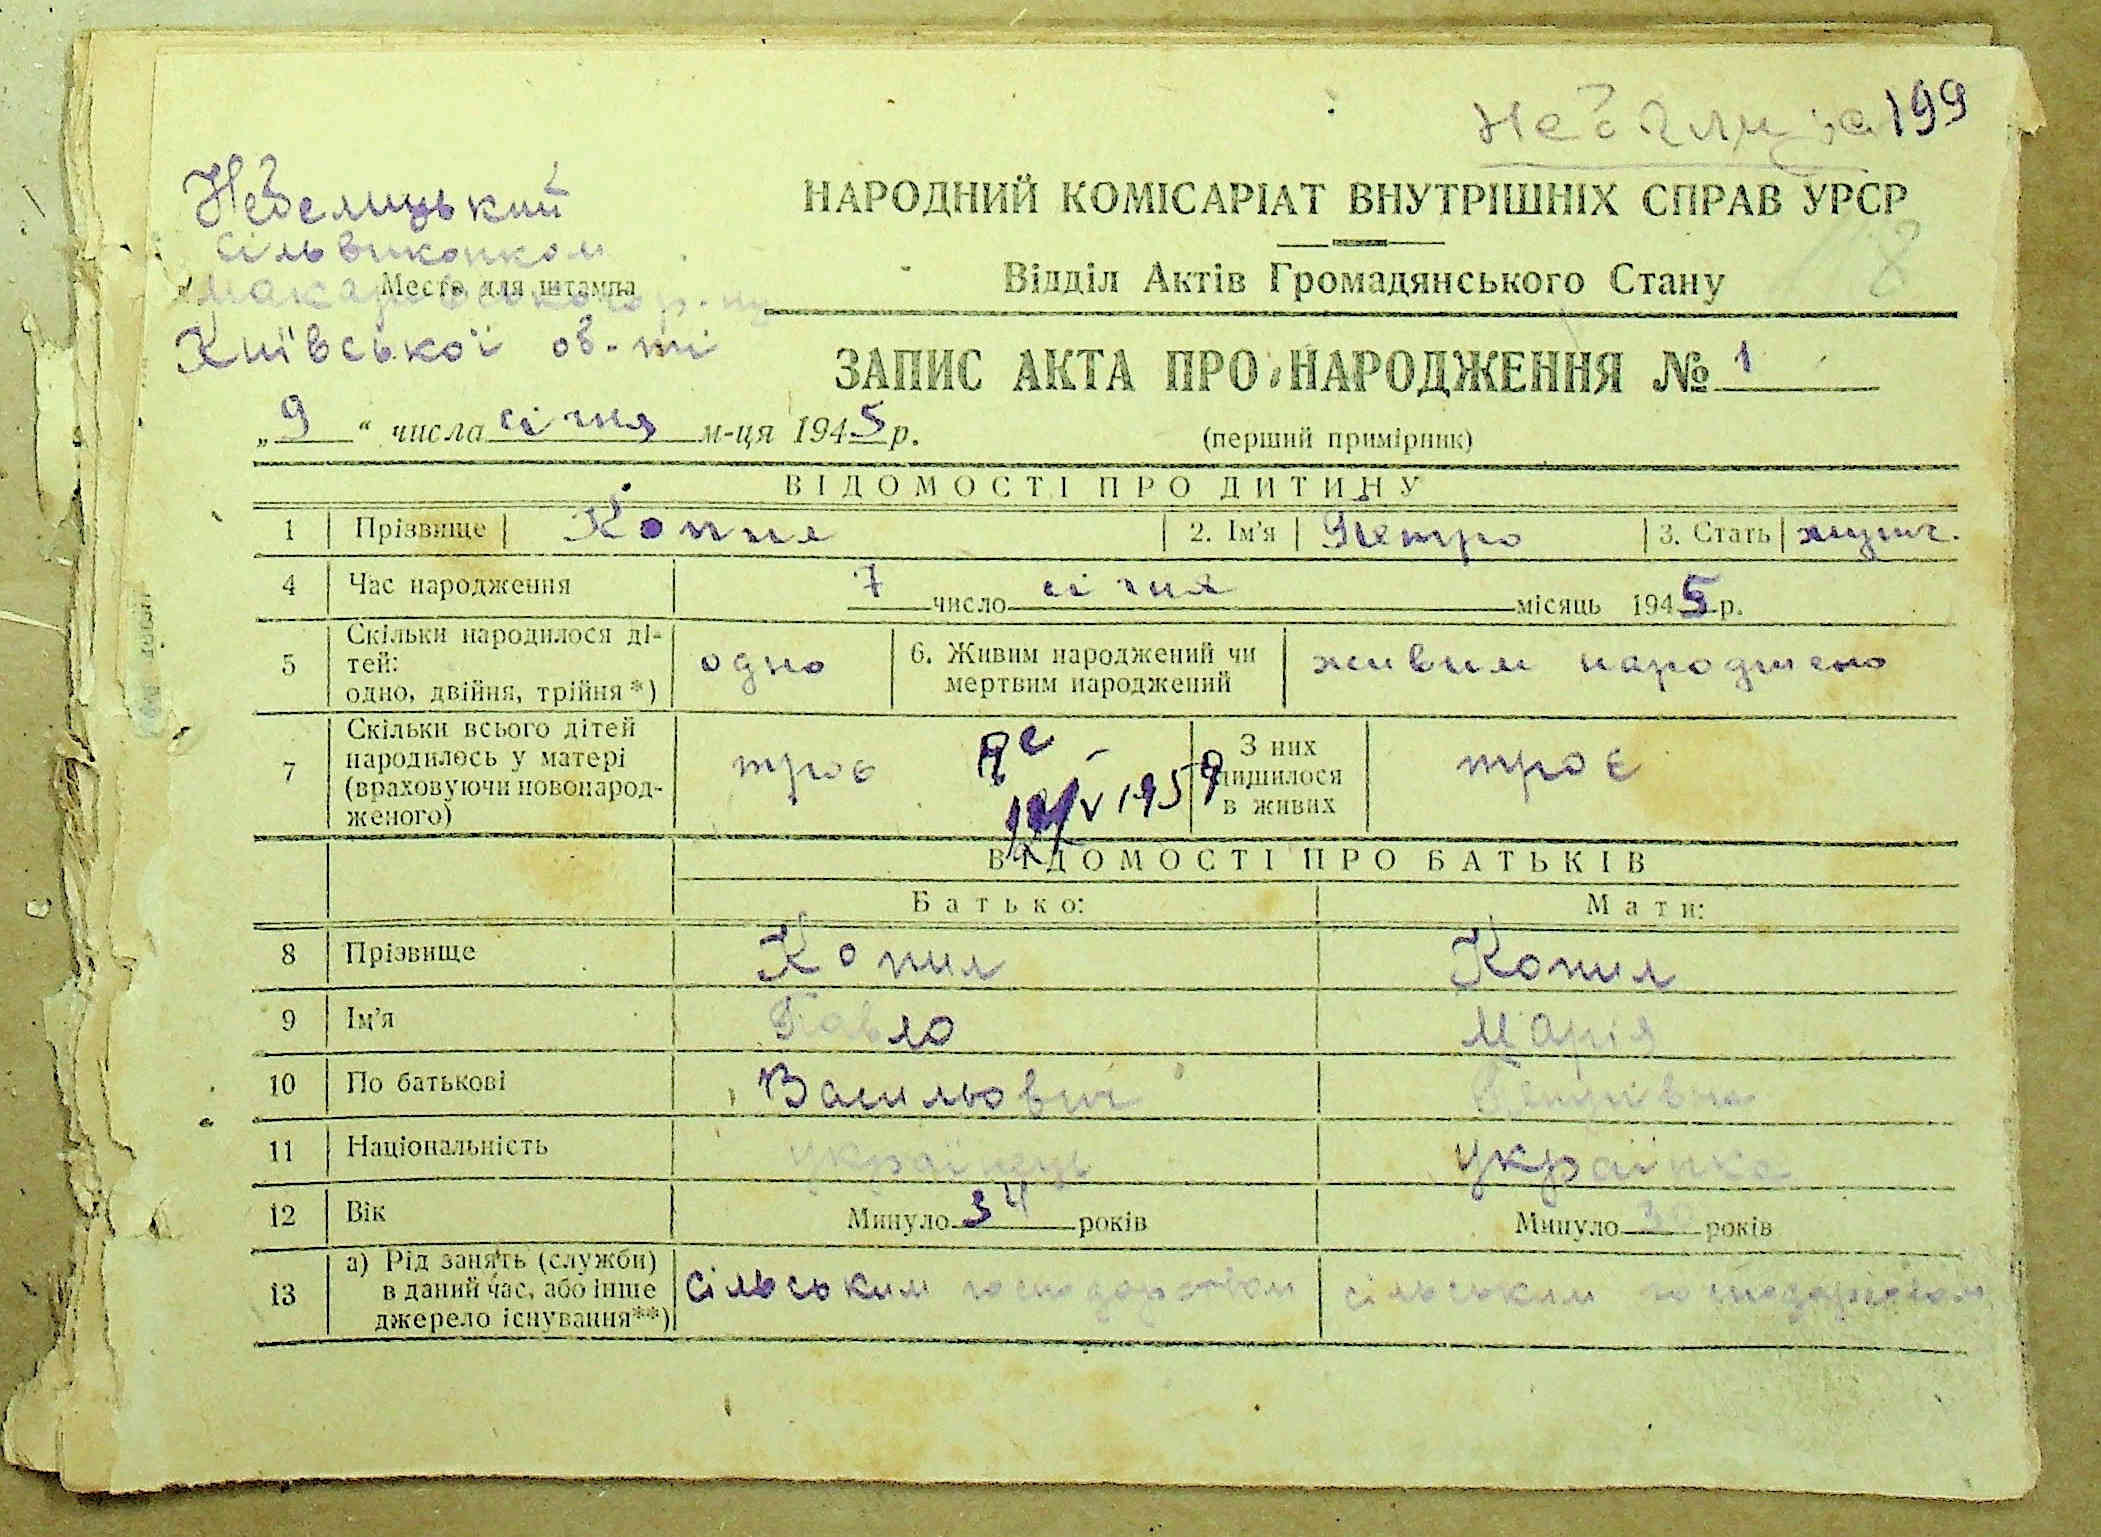 199
Неделицький
сільвиконком
Место для штампа
Макарівського р-ну
Київської об-ті
НАРОДНИЙ КОМІСАРІАТ ВНУТРІШНІХ СПРАВ УРСР
Відділ Актів Громадянського Стану
ЗАПИС АКТА ПРО НАРОДЖЕННЯ № 1
„9“ числа січня м-ця 1945 р.
(перший примірник)
ВІДОМОСТІ ПРО ДИТИНУ
1 Прізвище Копил 2. Ім'я Петро 3. Стать
4 Час народження 7 число січня місяць 1945 р.
5 Скільки народилося ді-
тей:
одно, двійня, трійня*) одно 6. Живим народжений чи
мертвим народжений живим народжено
7 Скільки всього дітей
народилось у матері
(враховуючи новонарод-
женого) троє З них
лишилося
в живих троє
V 1959
ВІДОМОСТІ ПРО БАТЬКІВ
Батько: Мати:
8 Прізвище Копил Копил
9 Ім'я Павло Марія
10 По батькові Васильович Петрівна
11 Національність українець українка
12 Вік Минуло 34 років Минуло років
13 а) Рід занять (служби)
в даний час, або інше
джерело існування**) сільським господарством сільським господарством